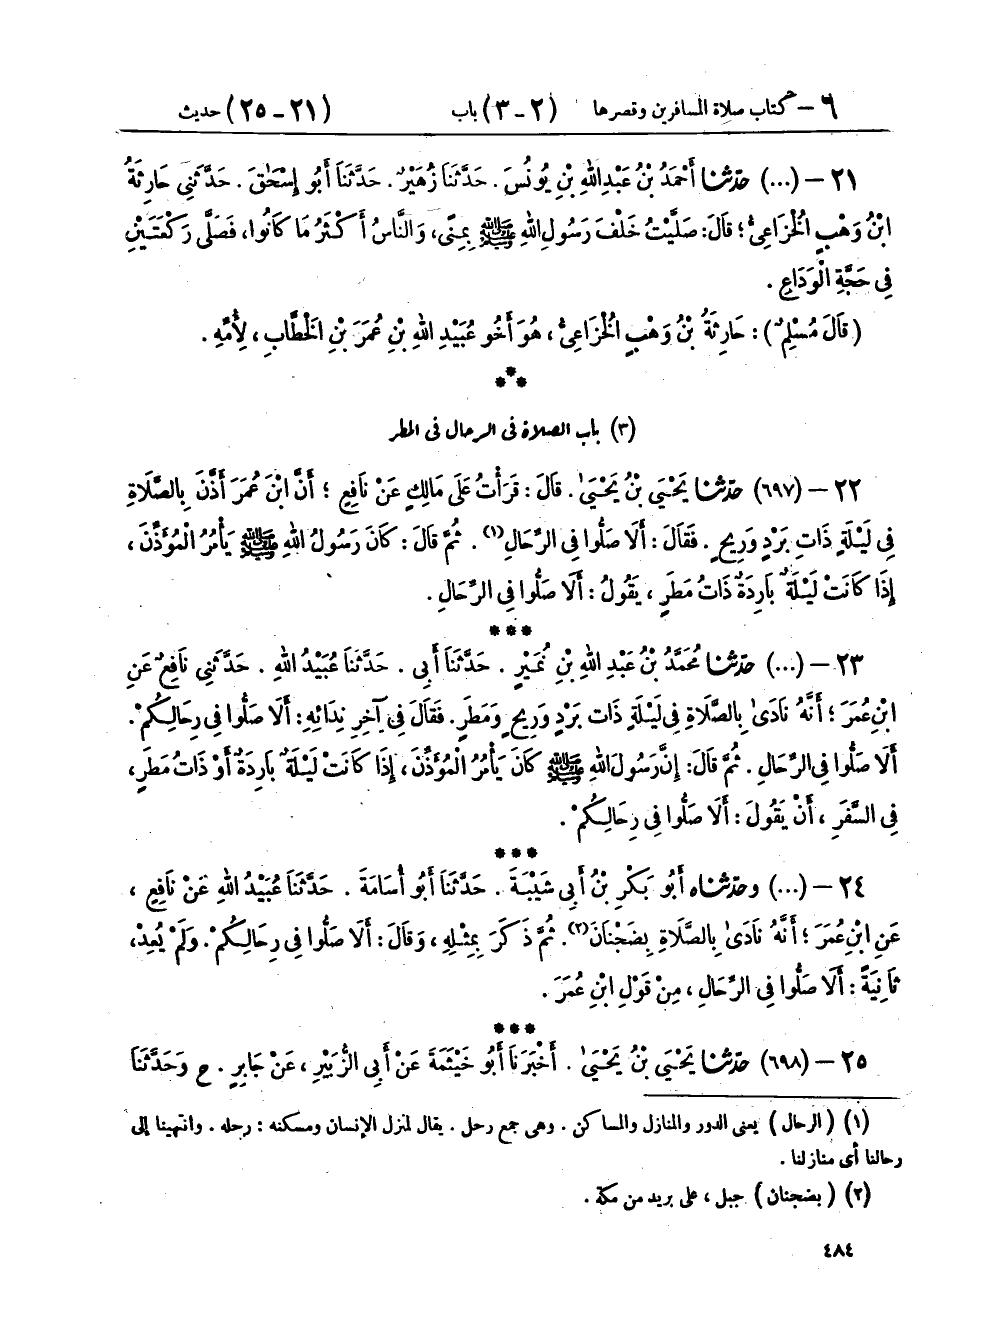 ٦ – كتاب صلاة المسافرين وقصرها (٢ - ٣) باب (٢١ - ٢٥) حديث
٢١ – (...) حدّثنا أَحْمَدُ بْنُ عَبْدِ اللهِ بْنِ يُونُسَ. حَدَّثَنَا زُهَيْرٌ. حَدَّثَنَا أَبُو إِسْحَاقَ. حَدَّثَنِي حَارِثَةُ
ابْنُ وَهْبٍ الْخُزَاعِيُّ؛ قَالَ: صَلَّيْتُ خَلْفَ رَسُولِ اللهِ ﷺ بِمِنًى، وَالنَّاسُ أَكْثَرُ مَا كَانُوا، فَصَلَّى رَكْعَتَيْنِ
فِي حَجَّةِ الْوَدَاعِ.
(قَالَ مُسْلِمٌ): حَارِثَةُ بْنُ وَهْبٍ الْخُزَاعِيُّ، هُوَ أَخُو عُبَيْدِ اللهِ بْنِ عُمَرَ بْنِ الْخَطَّابِ، لِأُمِّهِ.
***
(٣) باب الصلاة فى الرحال فى المطر
٢٢ – (٦٩٧) حدّثنا يَحْيَى بْنُ يَحْيَىٰ. قَالَ: قَرَأْتُ عَلَى مَالِكٍ عَنْ نَافِعٍ؛ أَنَّ ابْنَ عُمَرَ أَذَّنَ بِالصَّلَاةِ
فِي لَيْلَةٍ ذَاتِ بَرْدٍ وَرِيحٍ. فَقَالَ: أَلَا صَلُّوا فِي الرِّحَالِ(١). ثُمَّ قَالَ: كَانَ رَسُولُ اللهِ ﷺ يَأْمُرُ الْمُؤَذِّنَ،
إِذَا كَانَتْ لَيْلَةٌ بَارِدَةٌ ذَاتُ مَطَرٍ، يَقُولُ: أَلَا صَلُّوا فِي الرِّحَالِ.
***
٢٣ – (...) حدّثنا مُحَمَّدُ بْنُ عَبْدِ اللهِ بْنِ نُمَيْرٍ. حَدَّثَنَا أَبِي. حَدَّثَنَا عُبَيْدُ اللهِ. حَدَّثَنِي نَافِعٌ عَنِ
ابْنِ عُمَرَ؛ أَنَّهُ نَادَىٰ بِالصَّلَاةِ فِي لَيْلَةٍ ذَاتِ بَرْدٍ وَرِيحٍ وَمَطَرٍ. فَقَالَ فِي آخِرِ نِدَائِهِ: أَلَا صَلُّوا فِي رِحَالِكُمْ.
أَلَا صَلُّوا فِي الرِّحَالِ. ثُمَّ قَالَ: إِنَّ رَسُولَ اللهِ ﷺ كَانَ يَأْمُرُ الْمُؤَذِّنَ، إِذَا كَانَتْ لَيْلَةٌ بَارِدَةٌ أَوْ ذَاتُ مَطَرٍ،
فِي السَّفَرِ، أَنْ يَقُولَ: أَلَا صَلُّوا فِي رِحَالِكُمْ.
***
٢٤ – (...) وحدّثناه أَبُو بَكْرِ بْنُ أَبِي شَيْبَةَ. حَدَّثَنَا أَبُو أُسَامَةَ. حَدَّثَنَا عُبَيْدُ اللهِ عَنْ نَافِعٍ،
عَنِ ابْنِ عُمَرَ؛ أَنَّهُ نَادَىٰ بِالصَّلَاةِ بِضَجْنَانَ(٢). ثُمَّ ذَكَرَ بِمِثْلِهِ، وَقَالَ: أَلَا صَلُّوا فِي رِحَالِكُمْ. وَلَمْ يُعِدْ،
ثَانِيَةً: أَلَا صَلُّوا فِي الرِّحَالِ، مِنْ قَوْلِ ابْنِ عُمَرَ.
***
٢٥ – (٦٩٨) حدّثنا يَحْيَى بْنُ يَحْيَىٰ. أَخْبَرَنَا أَبُو خَيْثَمَةَ عَنْ أَبِي الزُّبَيْرِ، عَنْ جَابِرٍ. ح وَحَدَّثَنَا
(١) (الرحال) يعنى الدور والمنازل والمساكن. وهى جمع رحل. يقال لمنزل الإنسان ومسكنه: رحله. وانتهينا إلى
رحالنا أى منازلنا.
(٢) (بضجنان) جبل، على بريد من مكة.
٤٨٤